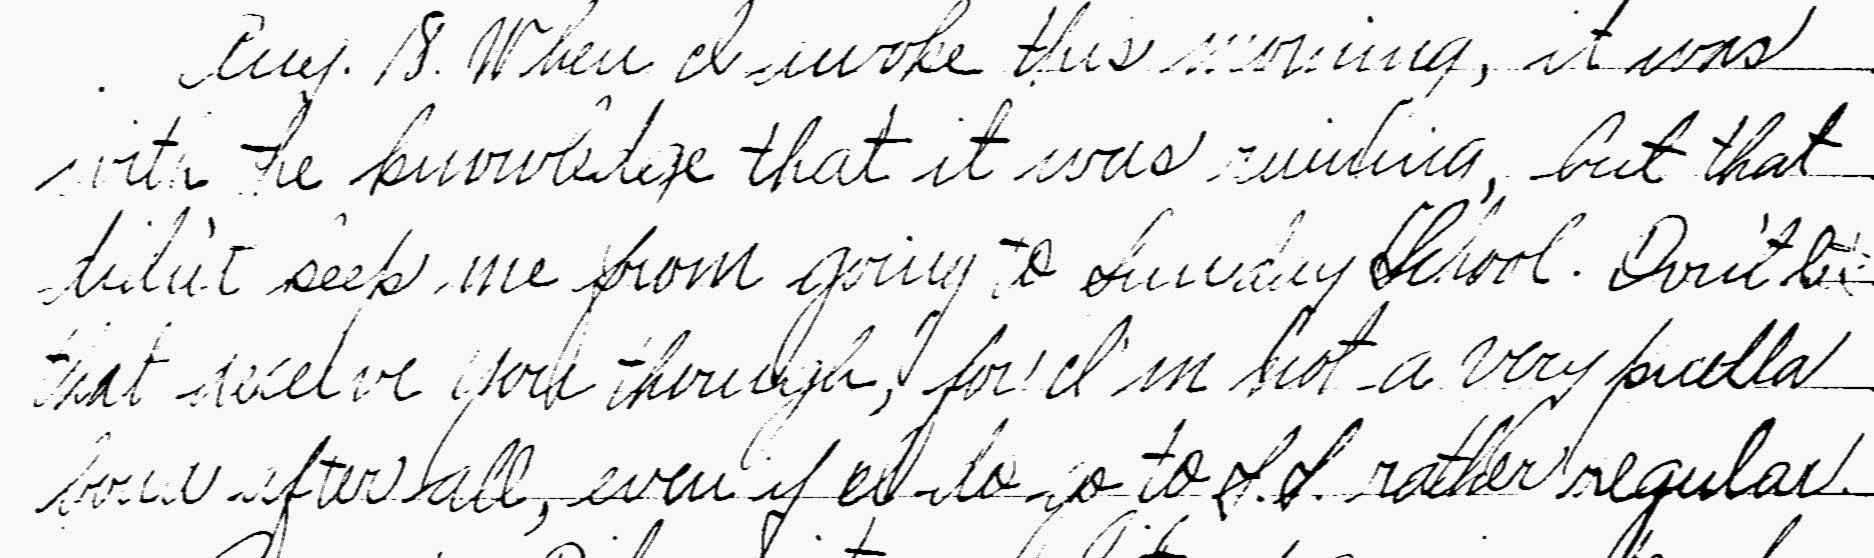 Aug. 18. When I awoke this morning, it was
with the knowledge that it was raining, but that
didn't keep me from going to Sunday School. Don't let
that deceive you though, for I'm not a very puella
bona after all, even if I do go to S.S. rather regular.